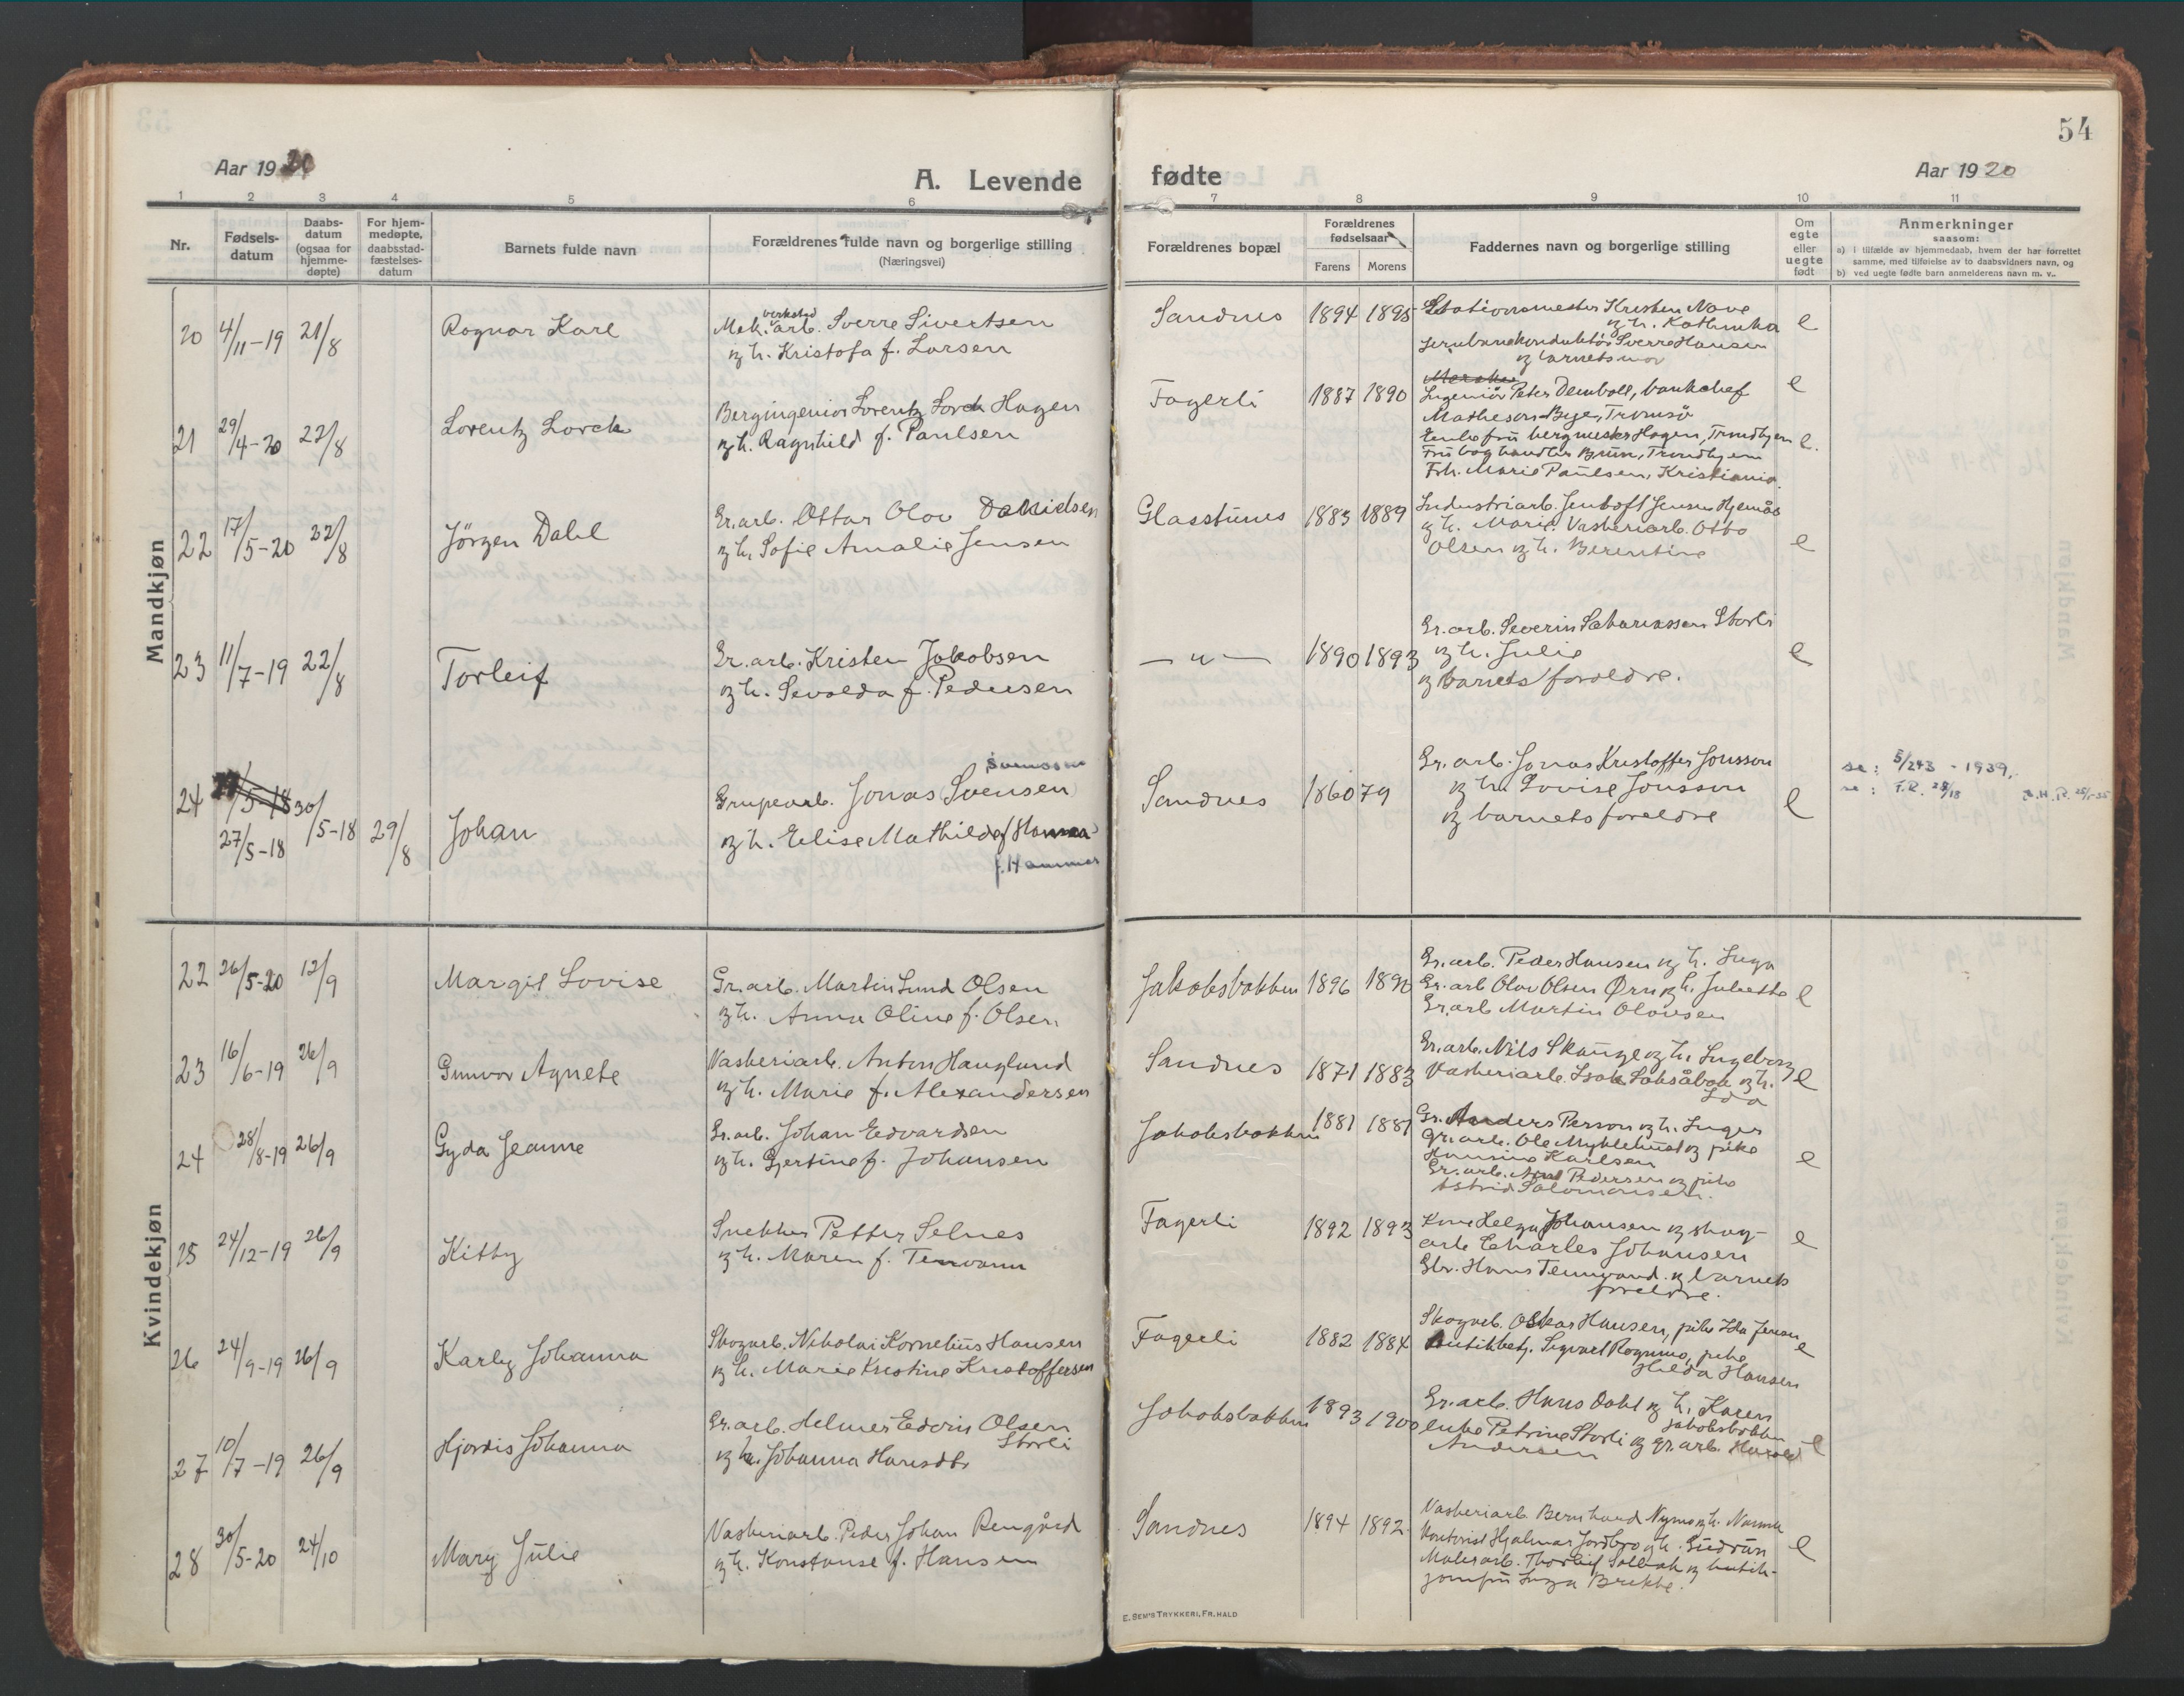 54
Aar 1920
A. Levende
fødte
Aar 1920
1 2 3 4 5 6 7 8 9 10 11
Nr.
Fødsels-
datum
Daabs-
datum
(ogsaa for
hjemme-
døpte)
For hjem-
medøpte,
daabsstad-
fæstelses-
datum
Barnets fulde navn
Forældrenes fulde navn og borgerlige stilling
(Næringsvei)
Forældrenes bopæl
Forældrenes
fødselsaar
Farens Morens
Faddernes navn og borgerlige stilling
Om
egte
eller
uegte
født
Anmerkninger
saasom:
a) i tilfælde av hjemmedaab, hvem der har forrettet
samme, med tilføielse av to daabsvidners navn, og
b) ved uegte fødte barn anmelderens navn m. v..
Mandkjøn
20 4/11-19 21/8 Ragnar Karl
Mek. verksted arb. Sverre Sivertsen
og h. Kristofa f. Larsen
Sandnes 1894 1895
Stationsmester Kresten Nave
og h. Kathinka
jernbanekonduktör Sverre Hansen
og barnets mor
e
21 29/4-20 22/8 Lorentz Lorck
Bergingeniör Lorentz Lorck Hagen
og h. Ragnhild f. Paulsen
Fagerli 1887 1890
Ingeniör Peter Demboll, bankchef
Matheson Brge, Tromsö
Enkefru bergmester Hagen, Trondhjem
Fru boghandler Brun, Trondhjem
Frk. Marie Paulsen, Kristiania.
e
e.
22 17/5-20 22/8 Jörgen Dahl
Gr.arb. Ottar Olov Davidsen
og h. Sofie Amalie Jensen
Glasstunes 1883 1889
Industriarb. Jentoft Jensen Hjemås
og h. Marie. Vaskeriarb. Otto
Olsen og h. Berentine
e
23 11/7-19 22/8 Torleif
Gr. arb. Kristen Jakobsen
og h. Sevalda f. Pedersen
— " — 1890 1893
Gr. arb. Severin Sakariassen Storli
og h. Julie
og barnets foreldre.
e
24 27/5-18 30/5-18 29/8 Johan
27/5-18
Grupearb. Jonas Svensen
og h. Elise Mathilde f Hamma
f. Hammer
Sandnes 1860 79
Gr. arb. Jonas Kristoffer Jonsson
og h. Lovise Jonsson
og barnets foreldre
e
se: 5/243 - 1939.
se: F.R. 28/18
Kvindekjøn
22 26/5-20 12/9 Margit Lovise
Gr.arb. Martin Lund Olsen
og h. Anna Oline f. Olsen
Jakobsbakken 1896 1890
Gr.arb. Peder Hansen og h. Inga
Gr. arb Olav Olsen Ørn og h. Julietta
Gr.arb Martin Olausen
e
23 16/6-19 26/9 Gunvor Agnete
Vaskeriarb. Anton Hauglund
og h. Marie f. Alexandersen
Sandnes 1871 1883
Gr.arb. Nils Skauge og h. Ingeborg
Vaskeriarb. Isak Saksåbak og h.
Ida
e
24 28/8-19 26/9 Gyda Jeanne
Gr.arb. Johan Edvardsen
og h. Gjertine f. Johansen
Jakobsbakken 1881 1881
Gr. Anders Person og h. Inger
gr. arb. Ole Myklebust og pike
Hansine Karlsen
Gr. arb. Axel Pedersen og pike
Astrid Salomonsen.
e
25 24/12-19 26/9 Kitty
Snekker Petter Selnes
og h. Maren f. Tennvann
Fagerli 1892 1893
Kone Helga Johansen og skog-
arb Charles Johansen
Gbr. Hans Tennvand. og barnets
foreldre.
e
26 24/9-19 26/9 Karly Johanna
Skogarb. Nikolai Kornelius Hansen
og h. Marie Kristine Kristoffersen
Fagerli 1882 1884
Skogarb. Oskar Hansen, pike Ida Jensen
butikbetj. Sigvart Rognmo, pike
Hilda Hansen
e
27 10/7-19 26/9 Hjördis Johanna
Gr. arb. Helmer Edvin Olsen
Storli
og h. Johanna Hansdtr
Jakobsbakken 1893 1900
Gr. arb. Hans Dahl og h. Karen
Jakobsbakken
enke Petrine Storli og gr. arb. Harald
Andersen
e
28 30/5-20 24/10 Mary Julie
Vaskeriarb. Peder Johan Rengård
og h. Konstanse f. Hansen
Sandnes 1894 1892
Vaskeriarb Bernhard Nymo og h. Namna
Kontorist Hjalmar Jordbro og h. Gudrun
Malerarb. Thorleif Solbak og butik-
jomfru Inga Brekke.
e
E. SEM'S TRYKKERI, FR.HALD